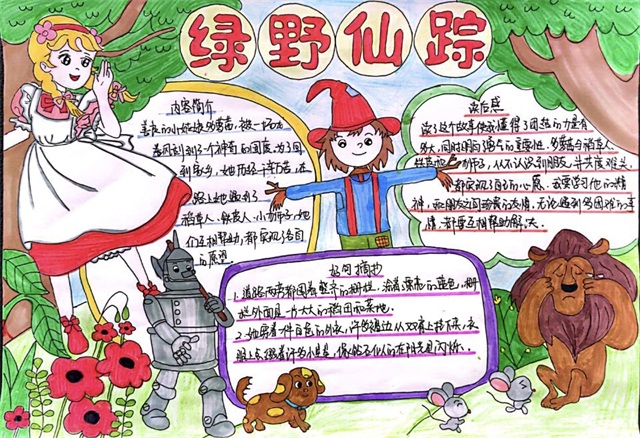 绿野仙踪
内容简介
美丽的小姑娘多萝茜，被一阵龙
卷风刮到了个神奇的国度，为了回
到家乡，她历经千辛万苦，在
路上她遇到
稻草人、铁皮人、小狮子，他
们互相帮助，都实现了各自
的愿望。
读后感
读了这个故事使我懂得了团结的力量有
多大，同时明白勇气的重要性，多萝茜与稻草人
狮子，从不认识到朋友，并共度难关，
都实现了自己的心愿，我要学习他们的精
神，和朋友互相珍惜的友情，无论遇到多困难的事
情，都要互相帮助解决。
好句摘抄
1、道路两旁都围着整齐的栅栏，涂着漂亮的蓝色，栅
栏外面是一大片的稻田和菜地。
2、她穿着一件白色的外衣，许的褶边从双肩上挂下来，衣
服上点缀着许多小星星，像钻石似的在阳光里闪烁。